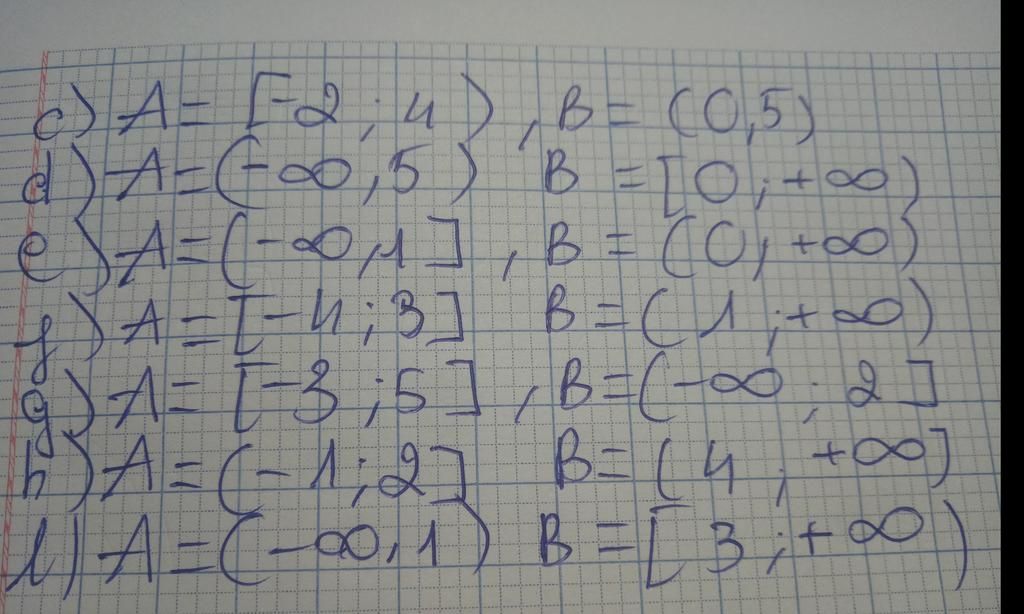 c) A = [-2 ; 4) , B = (0,5)
d) A = (-∞, 5) B = [0 ; +∞)
e) A = (-∞, 1] , B = (0; +∞)
f) A = [-4 ; 3] B = (1 ; +∞)
g) A = [-3 ; 5] , B = (-∞ ; 2]
h) A = (-1 ; 2] B = (4 ; +∞]
l) A = (-∞, 1) B = [3 ; +∞)